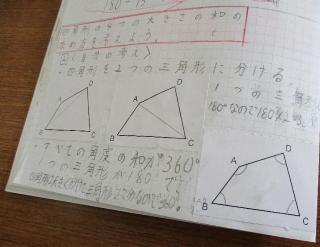 180-15
四角形の4つの大きさの和の
求め方を考えよう。
〈自分の考え〉
・四角形を2つの三角形に分ける
1つの三角
180°なので180×2
A D B C
A D B C
A D B C
・すべての角度の和が360°
1つの三角形が180°で
三角形2こ分なので360°